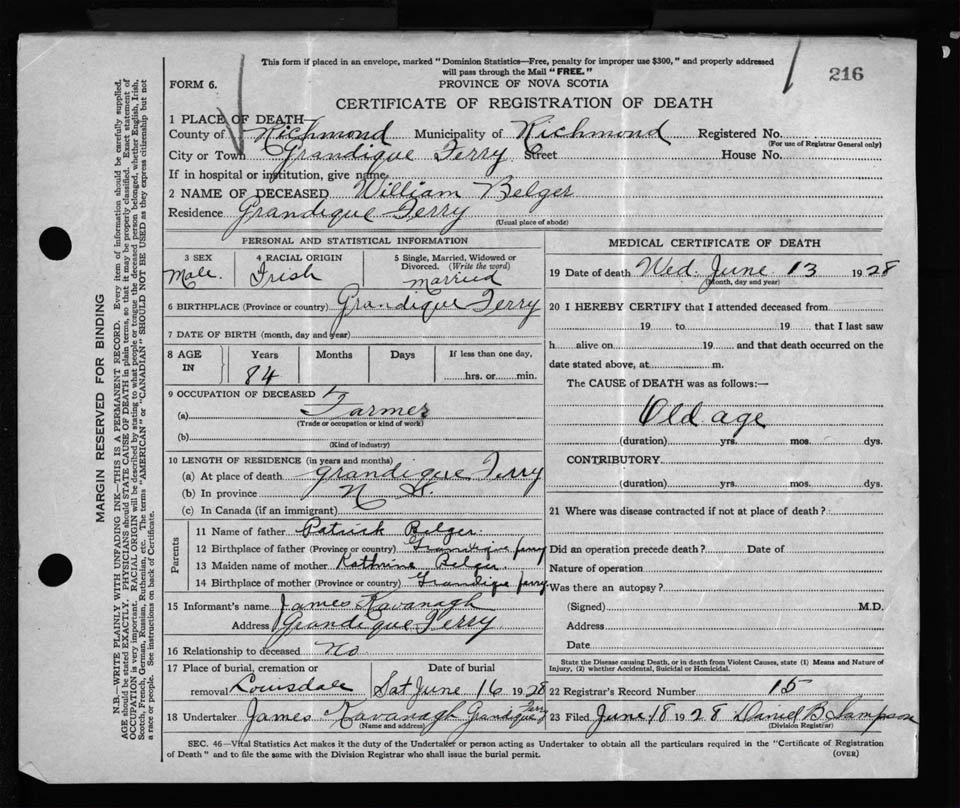 This form if placed in an envelope, marked "Dominion Statistics—Free, penalty for improper use $300," and properly addressed
will pass through the Mail "FREE."
216
FORM 6.
PROVINCE OF NOVA SCOTIA
CERTIFICATE OF REGISTRATION OF DEATH
1 PLACE OF DEATH—
County of Richmond Municipality of Richmond Registered No.
(For use of Registrar General only)
City or Town Grandique Ferry Street House No.
If in hospital or institution, give name
2 NAME OF DECEASED William Belger
Residence Grandique Ferry
(Usual place of abode)
PERSONAL AND STATISTICAL INFORMATION
3 SEX 4 RACIAL ORIGIN 5 Single, Married, Widowed or
Divorced. (Write the word)
Male. Irish married
6 BIRTHPLACE (Province or country) Grandique Ferry
7 DATE OF BIRTH (month, day and year)
8 AGE IN Years Months Days If less than one day,
84 hrs. or min.
9 OCCUPATION OF DECEASED
(a) Farmer
(Trade or occupation or kind of work)
(b)
(Kind of industry)
10 LENGTH OF RESIDENCE (in years and months)
(a) At place of death grandique Ferry
(b) In province N S.
(c) In Canada (if an immigrant)
Parents
11 Name of father Patrick Belger
12 Birthplace of father (Province or country) Grandique ferry
13 Maiden name of mother Kathrine Belger
14 Birthplace of mother (Province or country) Grandique ferry
15 Informant's name James Kavanagh
Address Grandique Ferry
16 Relationship to deceased No
17 Place of burial, cremation or Date of burial
removal Louisdale Sat June 16 1928
18 Undertaker James Kavanagh Grandique Ferry
(Name and address)
MEDICAL CERTIFICATE OF DEATH
19 Date of death Wed. June 13 1928
(Month, day and year)
20 I HEREBY CERTIFY that I attended deceased from
19 to 19 that I last saw
h alive on 19 and that death occurred on the
date stated above, at m.
The CAUSE of DEATH was as follows:—
Old age
(duration) yrs. mos. dys.
CONTRIBUTORY
(duration) yrs. mos. dys.
21 Where was disease contracted if not at place of death?
Did an operation precede death? Date of
Nature of operation
Was there an autopsy?
(Signed) M.D.
Address
Date
State the Disease causing Death, or in death from Violent Causes, state (1) Means and Nature of
Injury, (2) whether Accidental, Suicidal or Homicidal.
22 Registrar's Record Number 15
23 Filed June 18 1928 Daniel B. Sampson
(Division Registrar)
SEC. 46—Vital Statistics Act makes it the duty of the Undertaker or person acting as Undertaker to obtain all the particulars required in the "Certificate of Registration
of Death" and to file the same with the Division Registrar who shall issue the burial permit.
(OVER)
MARGIN RESERVED FOR BINDING
N.B.—WRITE PLAINLY WITH UNFADING INK—THIS IS A PERMANENT RECORD. Every item of information should be carefully supplied.
AGE should be stated EXACTLY. PHYSICIANS should STATE CAUSE OF DEATH in plain terms, so that it may be properly classified. Exact statement of
OCCUPATION is very important. RACIAL ORIGIN will be described by stating to what people or tongue the deceased person belonged, whether English, Irish,
Scotch, French, German, Russian, Ruthenian, etc. The terms "AMERICAN" or "CANADIAN" SHOULD NOT BE USED as they express citizenship but not
a race or people. See instructions on back of Certificate.